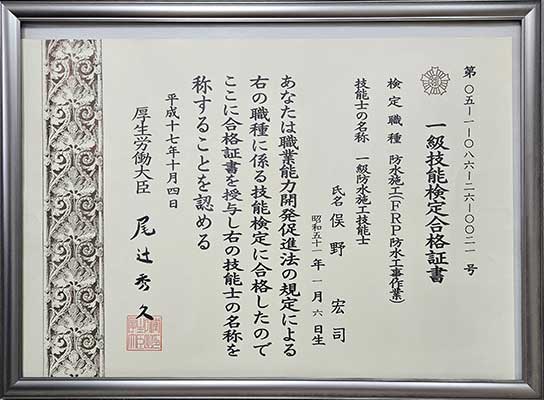 第〇五-一-〇八六-二六-〇〇二一号
一級技能検定合格証書
検定職種 防水施工(FRP防水工事作業)
技能士の名称 一級防水施工技能士
氏名 俣野 宏司
昭和五十一年一月六日生
あなたは職業能力開発促進法の規定による
右の職種に係る技能検定に合格したので
ここに合格証書を授与し右の技能士の名称を
称することを認める
平成十七年十月四日
厚生労働大臣 尾辻秀久